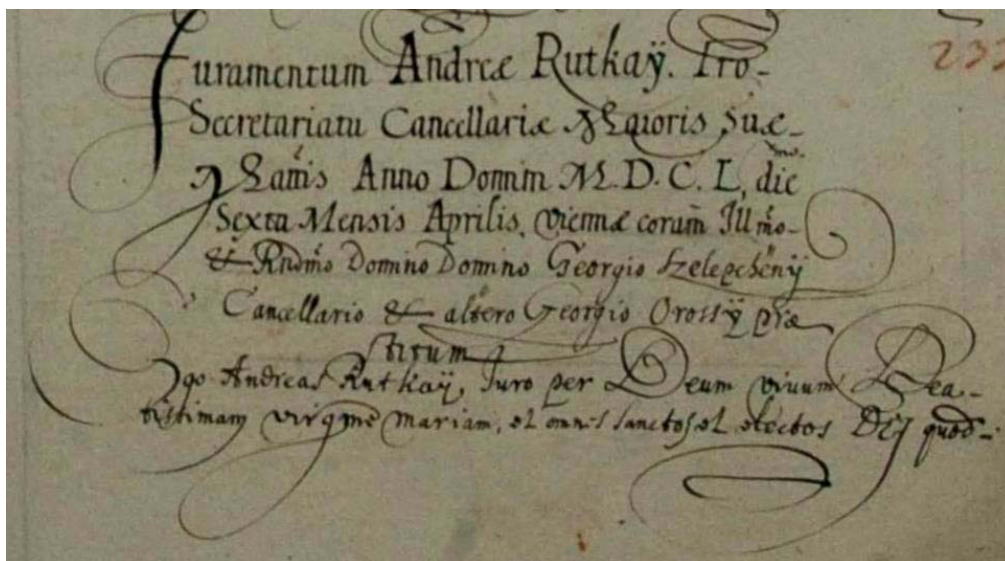 233
Juramentum Andreæ Rutkaÿ. Pro-
Secretariatu Cancellariæ Maioris suæ
Mattis Anno Domini M.D.C.L, die
Sexta Mensis Aprilis, Viennæ coram Illmo
& Rndmo Domino Domino Georgio Szelepcheny
Cancellario & altero Georgio Orossÿ præ
stitum
Ego Andreas Rutkaÿ, Juro per Deum vivum Bea-
tissimam virginē Mariam, et omnes sanctos et electos Dei quod